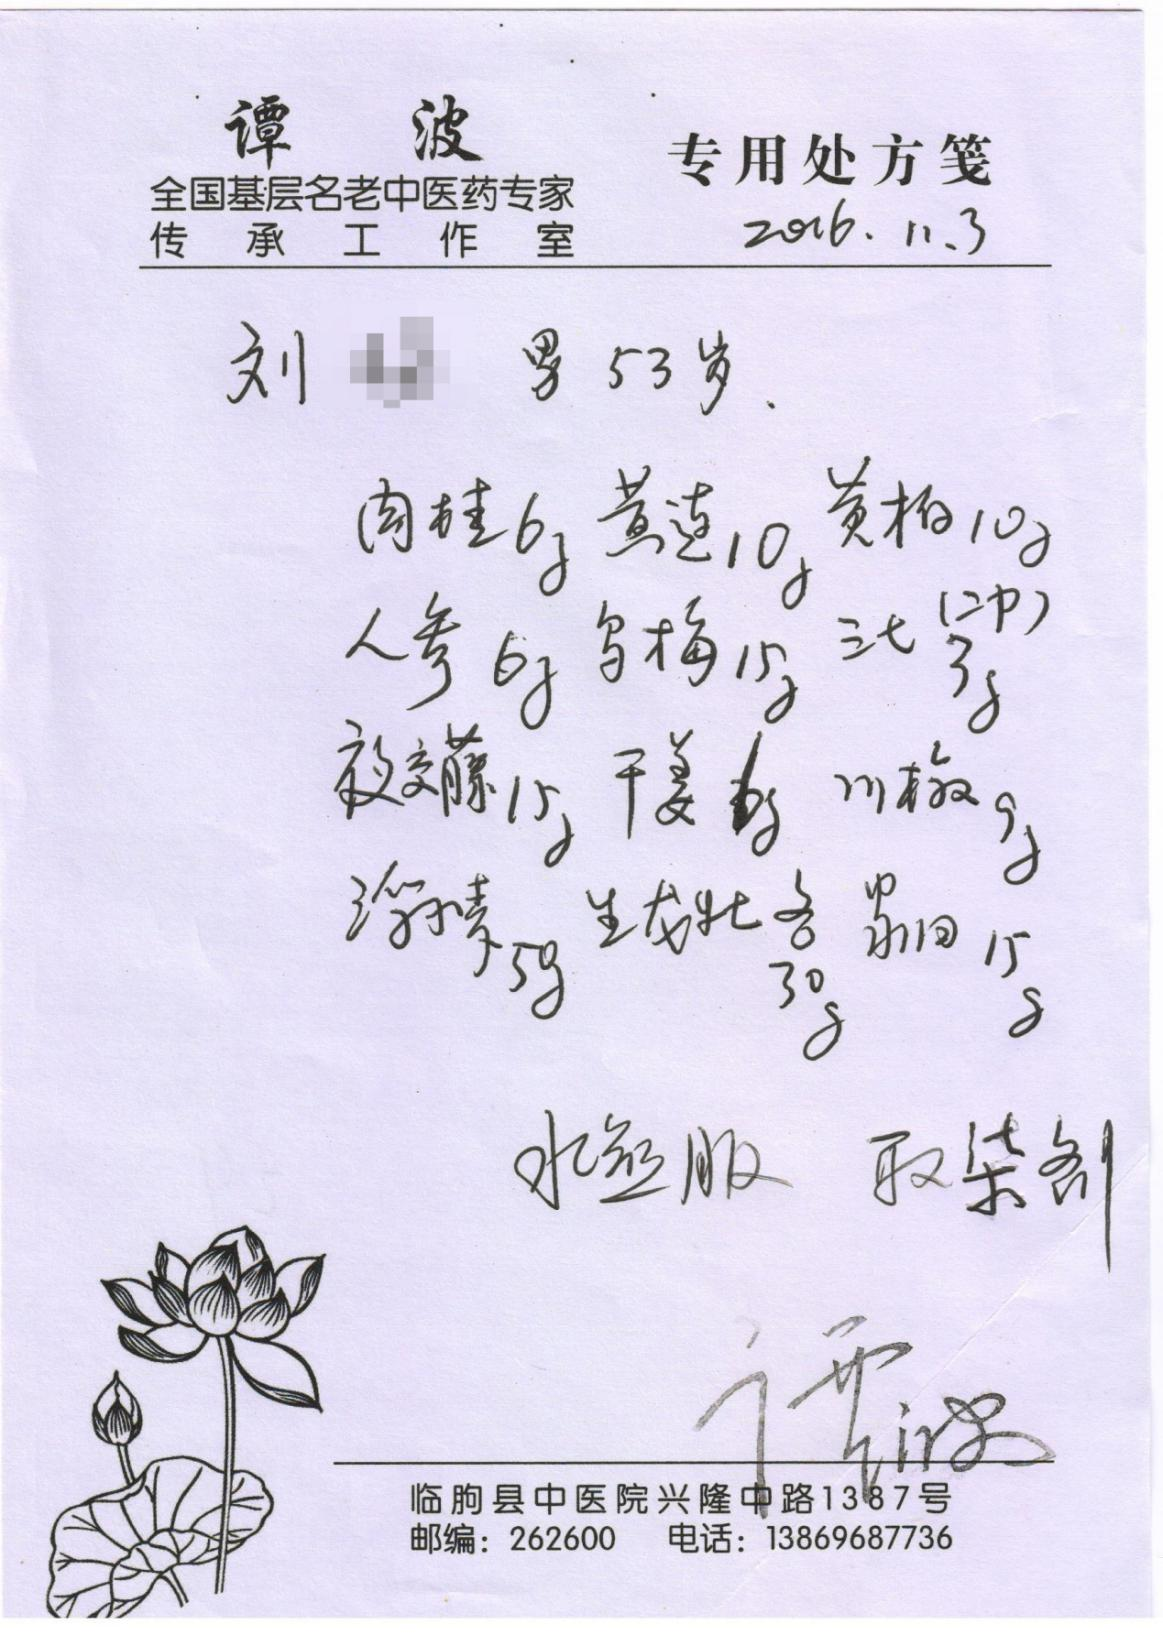 谭波 专用处方笺
全国基层名老中医药专家
传承工作室 2016.11.3
刘 男 53岁、
肉桂6g 黄连10g 黄柏10g
人参6g 乌梅15g 三七(冲)3g
夜交藤15g 干姜 g 川椒9g
生龙牡各30g 15g
水煎服 取柒剂
谭波
临朐县中医院兴隆中路1387号
邮编：262600 电话：13869687736